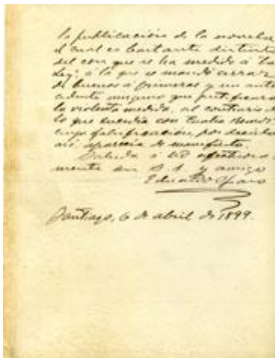 la publicación de la novela
el cual es bastante distinto
del con que se ha medido á la
Ley; á la que se mandó
de buenas á primeras y sin
cedente ninguno que justificara
la violenta medida, al contrario de
lo que sucedía con
cuya falsificación, por decirlo
así aparecía de manifiesto.
Saluda á Ud
mente su S. S. y amigo
Eduardo
Santiago, 6 de abril de 1899.